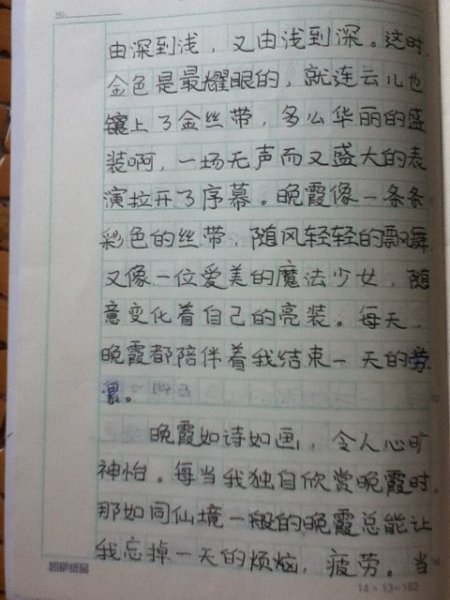 No.
由深到浅，又由浅到深。这时，
金色是最耀眼的，就连云儿也
镶上了金丝带，多么华丽的盛
装啊，一场无声而又盛大的表
演拉开了序幕。晚霞像一条条
彩色的丝带，随风轻轻的飘舞
又像一位爱美的魔法少女，随
意变化着自己的亮装。每天，
晚霞都陪伴着我结束一天的劳
累。
晚霞如诗如画，令人心旷
神怡。每当我独自欣赏晚霞时，
那如同仙境一般的晚霞总能让
我忘掉一天的烦恼，疲劳。当